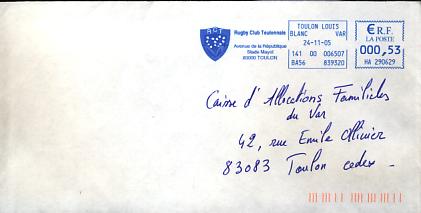 RCT
Rugby Club Toulonnais
Avenue de la République
Stade Mayol
83000 TOULON
TOULON LOUIS
BLANC VAR
24-11-05
141 00 006507
BA56 839320
€ R.F.
LA POSTE
000,53
HA 290629
Caisse d'Allocations Familiales
du Var
42, rue Emile Ollivier
83083 Toulon cedex -